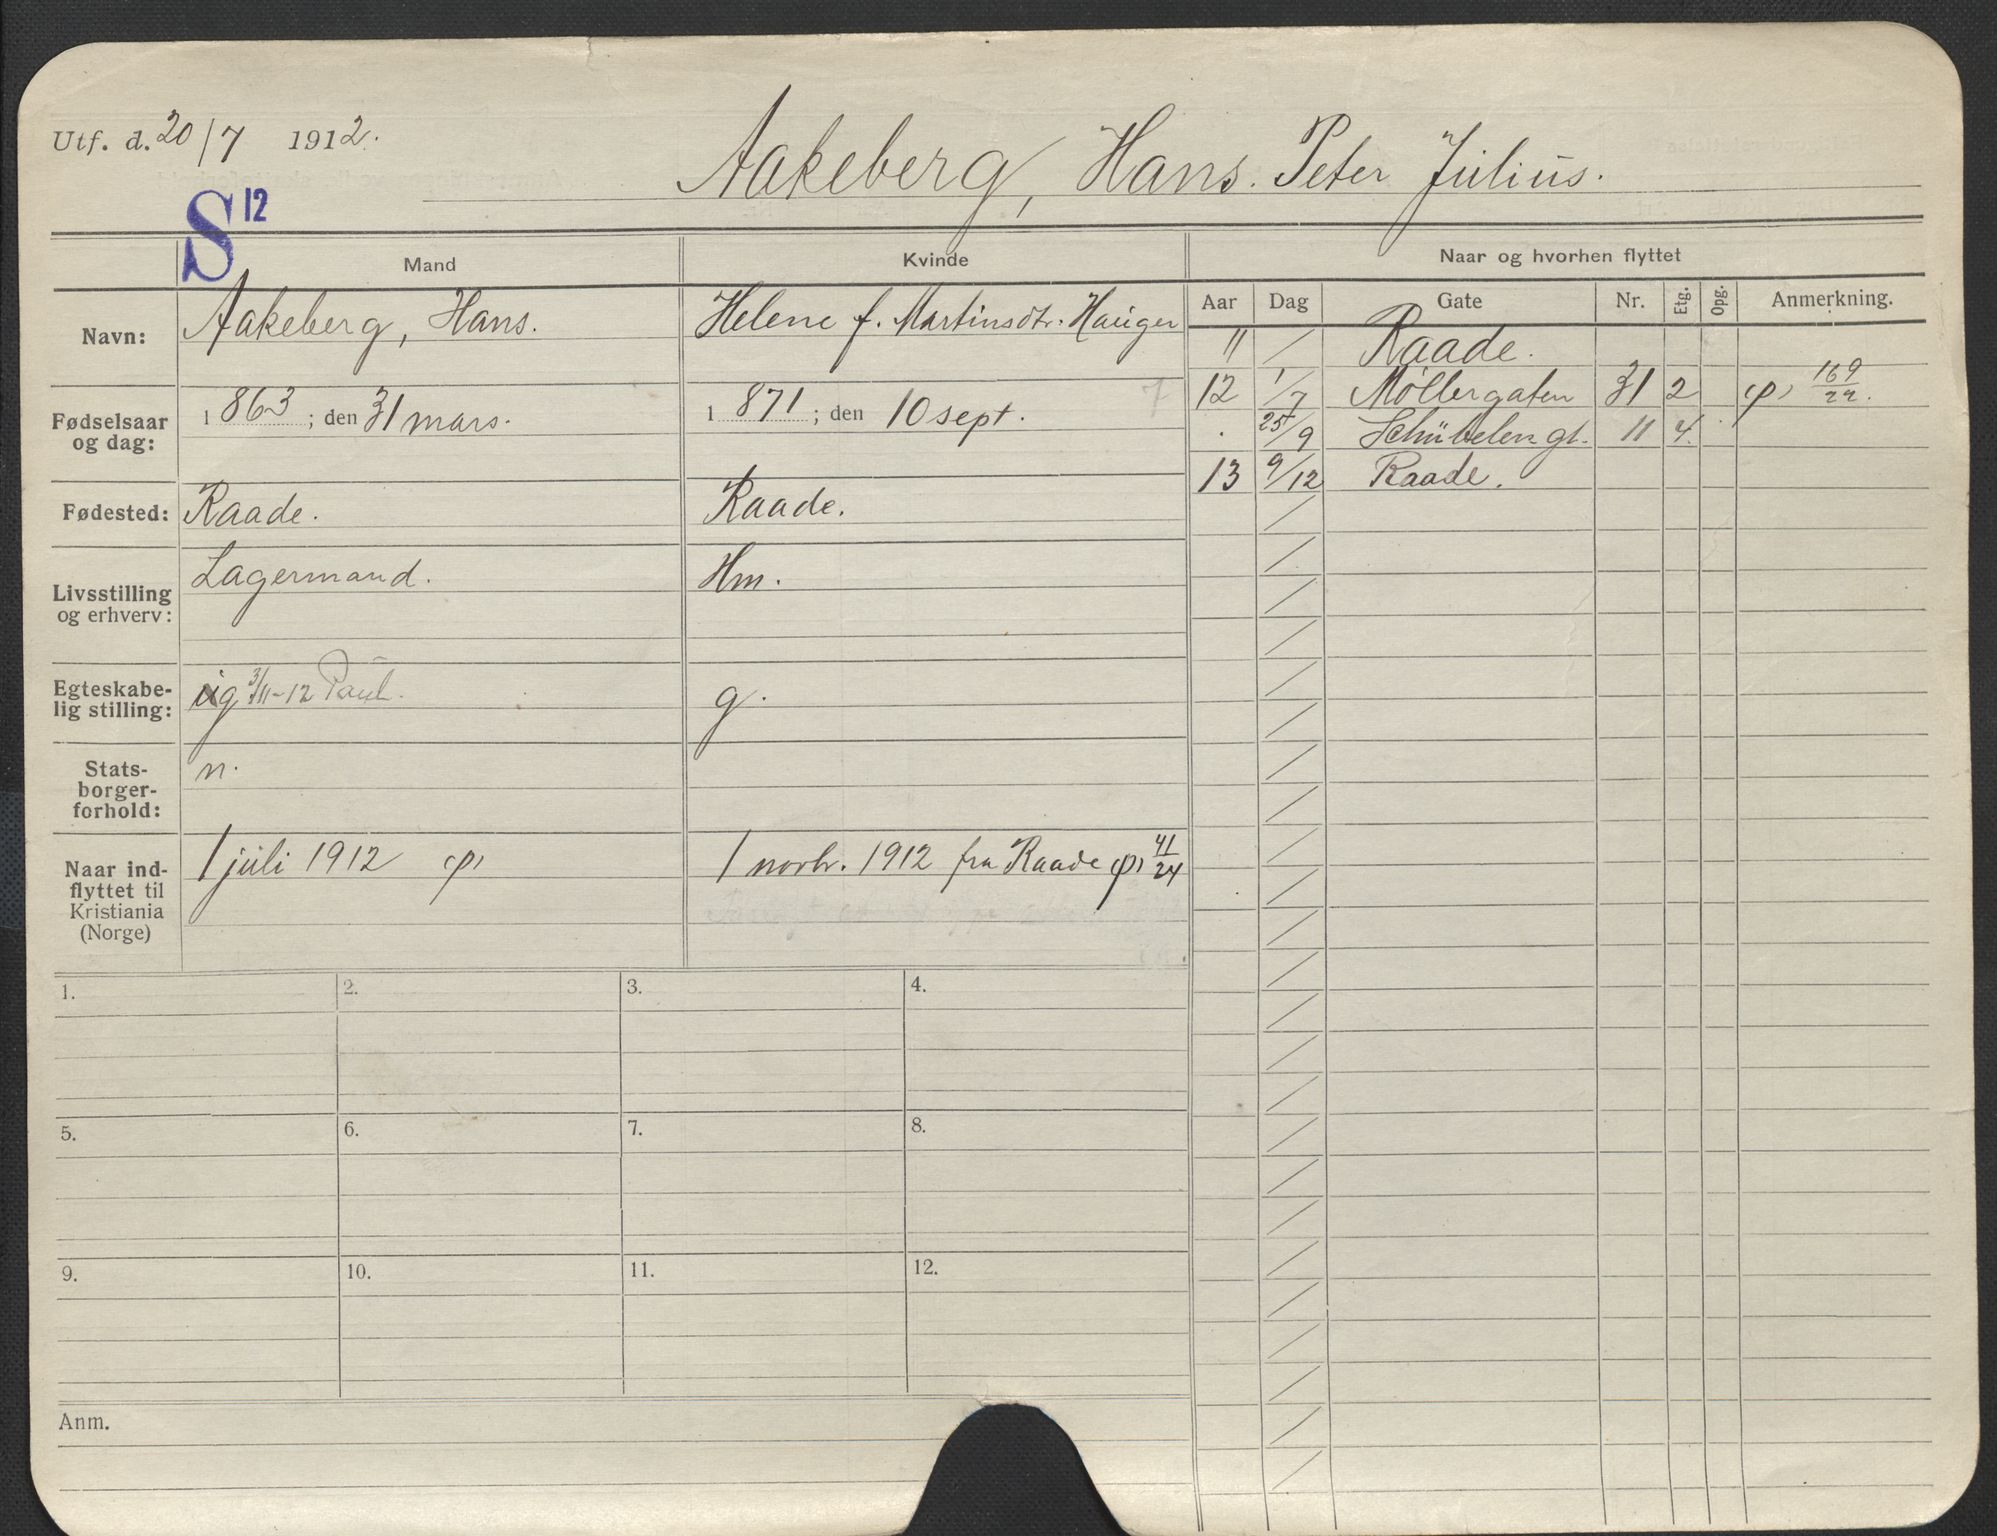 Utf. d. 20/7 1912.
Aakeberg, Hans. Peter Julius.
S 12
Mand
Kvinde
Naar og hvorhen flyttet
Aar Dag Gate Nr. Etg. Opg. Anmerkning.
Navn: Aakeberg, Hans. Helene f. Martinsdtr. Hauger
Fødselsaar og dag: 1 863 ; den 31 mars. 1 871 ; den 10 sept. 7
Fødested: Raade. Raade.
Livsstilling og erhverv: Lagermand. Hm.
Egteskabelig stilling: ug 3/11-12 Paul. g.
Statsborgerforhold: n.
Naar indflyttet til Kristiania (Norge) 1 juli 1912 φ) 1 novbr. 1912 fra Raade φ) 41/24
" / Raade.
12 1/7 Møllergaten 31 2 φ) 169/22.
. 25/9 Schübelergt. 11 4.
13 9/12 Raade.
1. 2. 3. 4.
5. 6. 7. 8.
9. 10. 11. 12.
Anm.